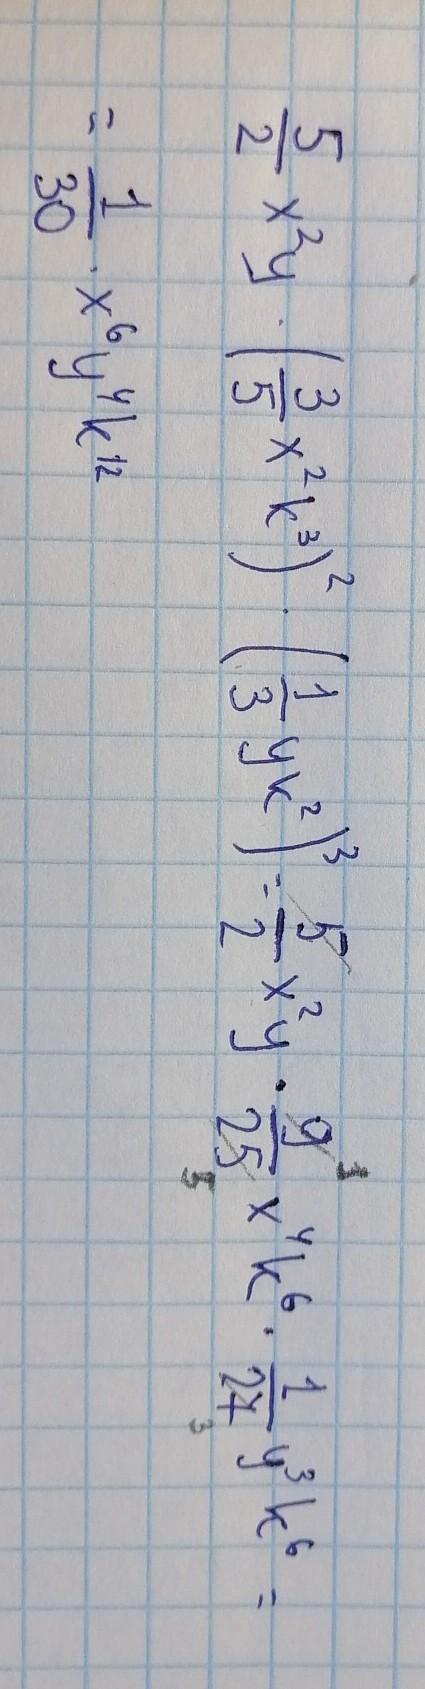 5/2 x²y · (3/5 x²k³)² · (1/3 yk²)³ = 5/2 x²y · 9/25 x⁴k⁶ · 1/27 y³k⁶ =
1 5 3
= 1/30 · x⁶y⁴k¹²